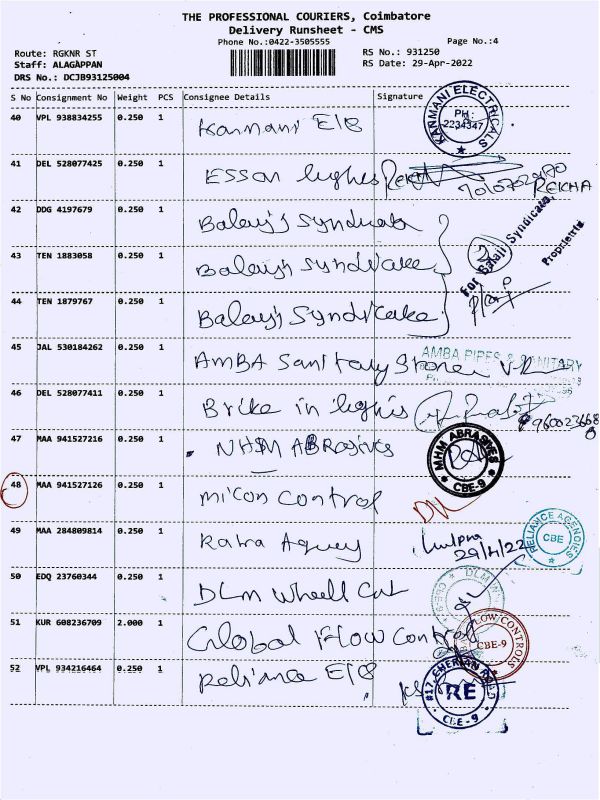 THE PROFESSIONAL COURIERS, Coimbatore
Delivery Runsheet - CMS
Phone No.:0422-3505555
Page No.:4
Route: RGKNR ST
RS No.: 931250
Staff: ALAGAPPAN
RS Date: 29-Apr-2022
DRS No.: DCJB93125004
S No Consignment No Weight PCS Consignee Details Signature
40 VPL 938834255 0.250 1 Kanmani E/B
KANMANI ELECTRICALS
PH: 2234347
41 DEL 528077425 0.250 1 ESSON lights
REKHA
42 DDG 4197679 0.250 1 Balaji Syndicate
43 TEN 1883058 0.250 1 Balaji Syndicate
44 TEN 1879767 0.250 1 Balaji Syndicate
For Balaji Syndicate,
Proprietrix
45 JAL 530184262 0.250 1 AMBA Sanitary Stores
AMBA PIPES & SANITARY
46 DEL 528077411 0.250 1 Brite in lights
47 MAA 941527216 0.250 1 NHM ABRasives
MHM ABRASIVES
CBE-9
48 MAA 941527126 0.250 1 micon control
49 MAA 284809814 0.250 1
29/4/22
RELIANCE AGENCIES
CBE
50 EDQ 23760344 0.250 1 DLM wheell
DLM W
CBE-9
51 KUR 608236709 2.000 1 Global Flow Control
FLOW CONTROLS
CBE-9
52 VPL 934216464 0.250 1 Reliance E/B
RE
CBE-9